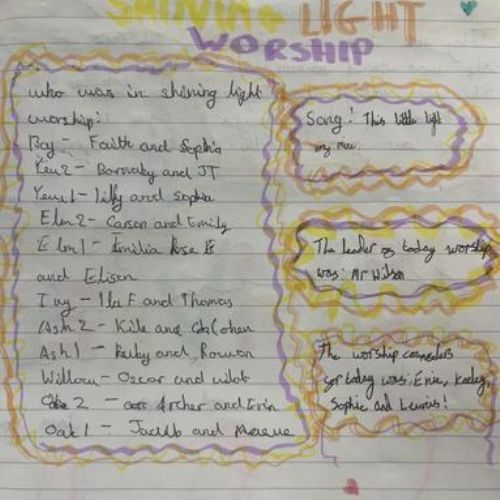 SHINING LIGHT
WORSHIP
who was in shining light
worship:
Bay - Faith and Sophia
Yew 2 - Barnaby and JT
Yew 1 - lilly and Sophia
Elm 2 - Carson and Emily
Elm 1 - Emilia Rose E
and Elison
Ivy - Ila F and Thomas
Ash 2 - Kile and Cohen
Ash 1 - Ruby and Rowan
Willow - Oscar and
2 - Archer and Erin
Oak 1 - Jacob and
Song: This little light
The leader of today worship
was: Mr Wilson
The worship
for today was: Evie,
Sophie and